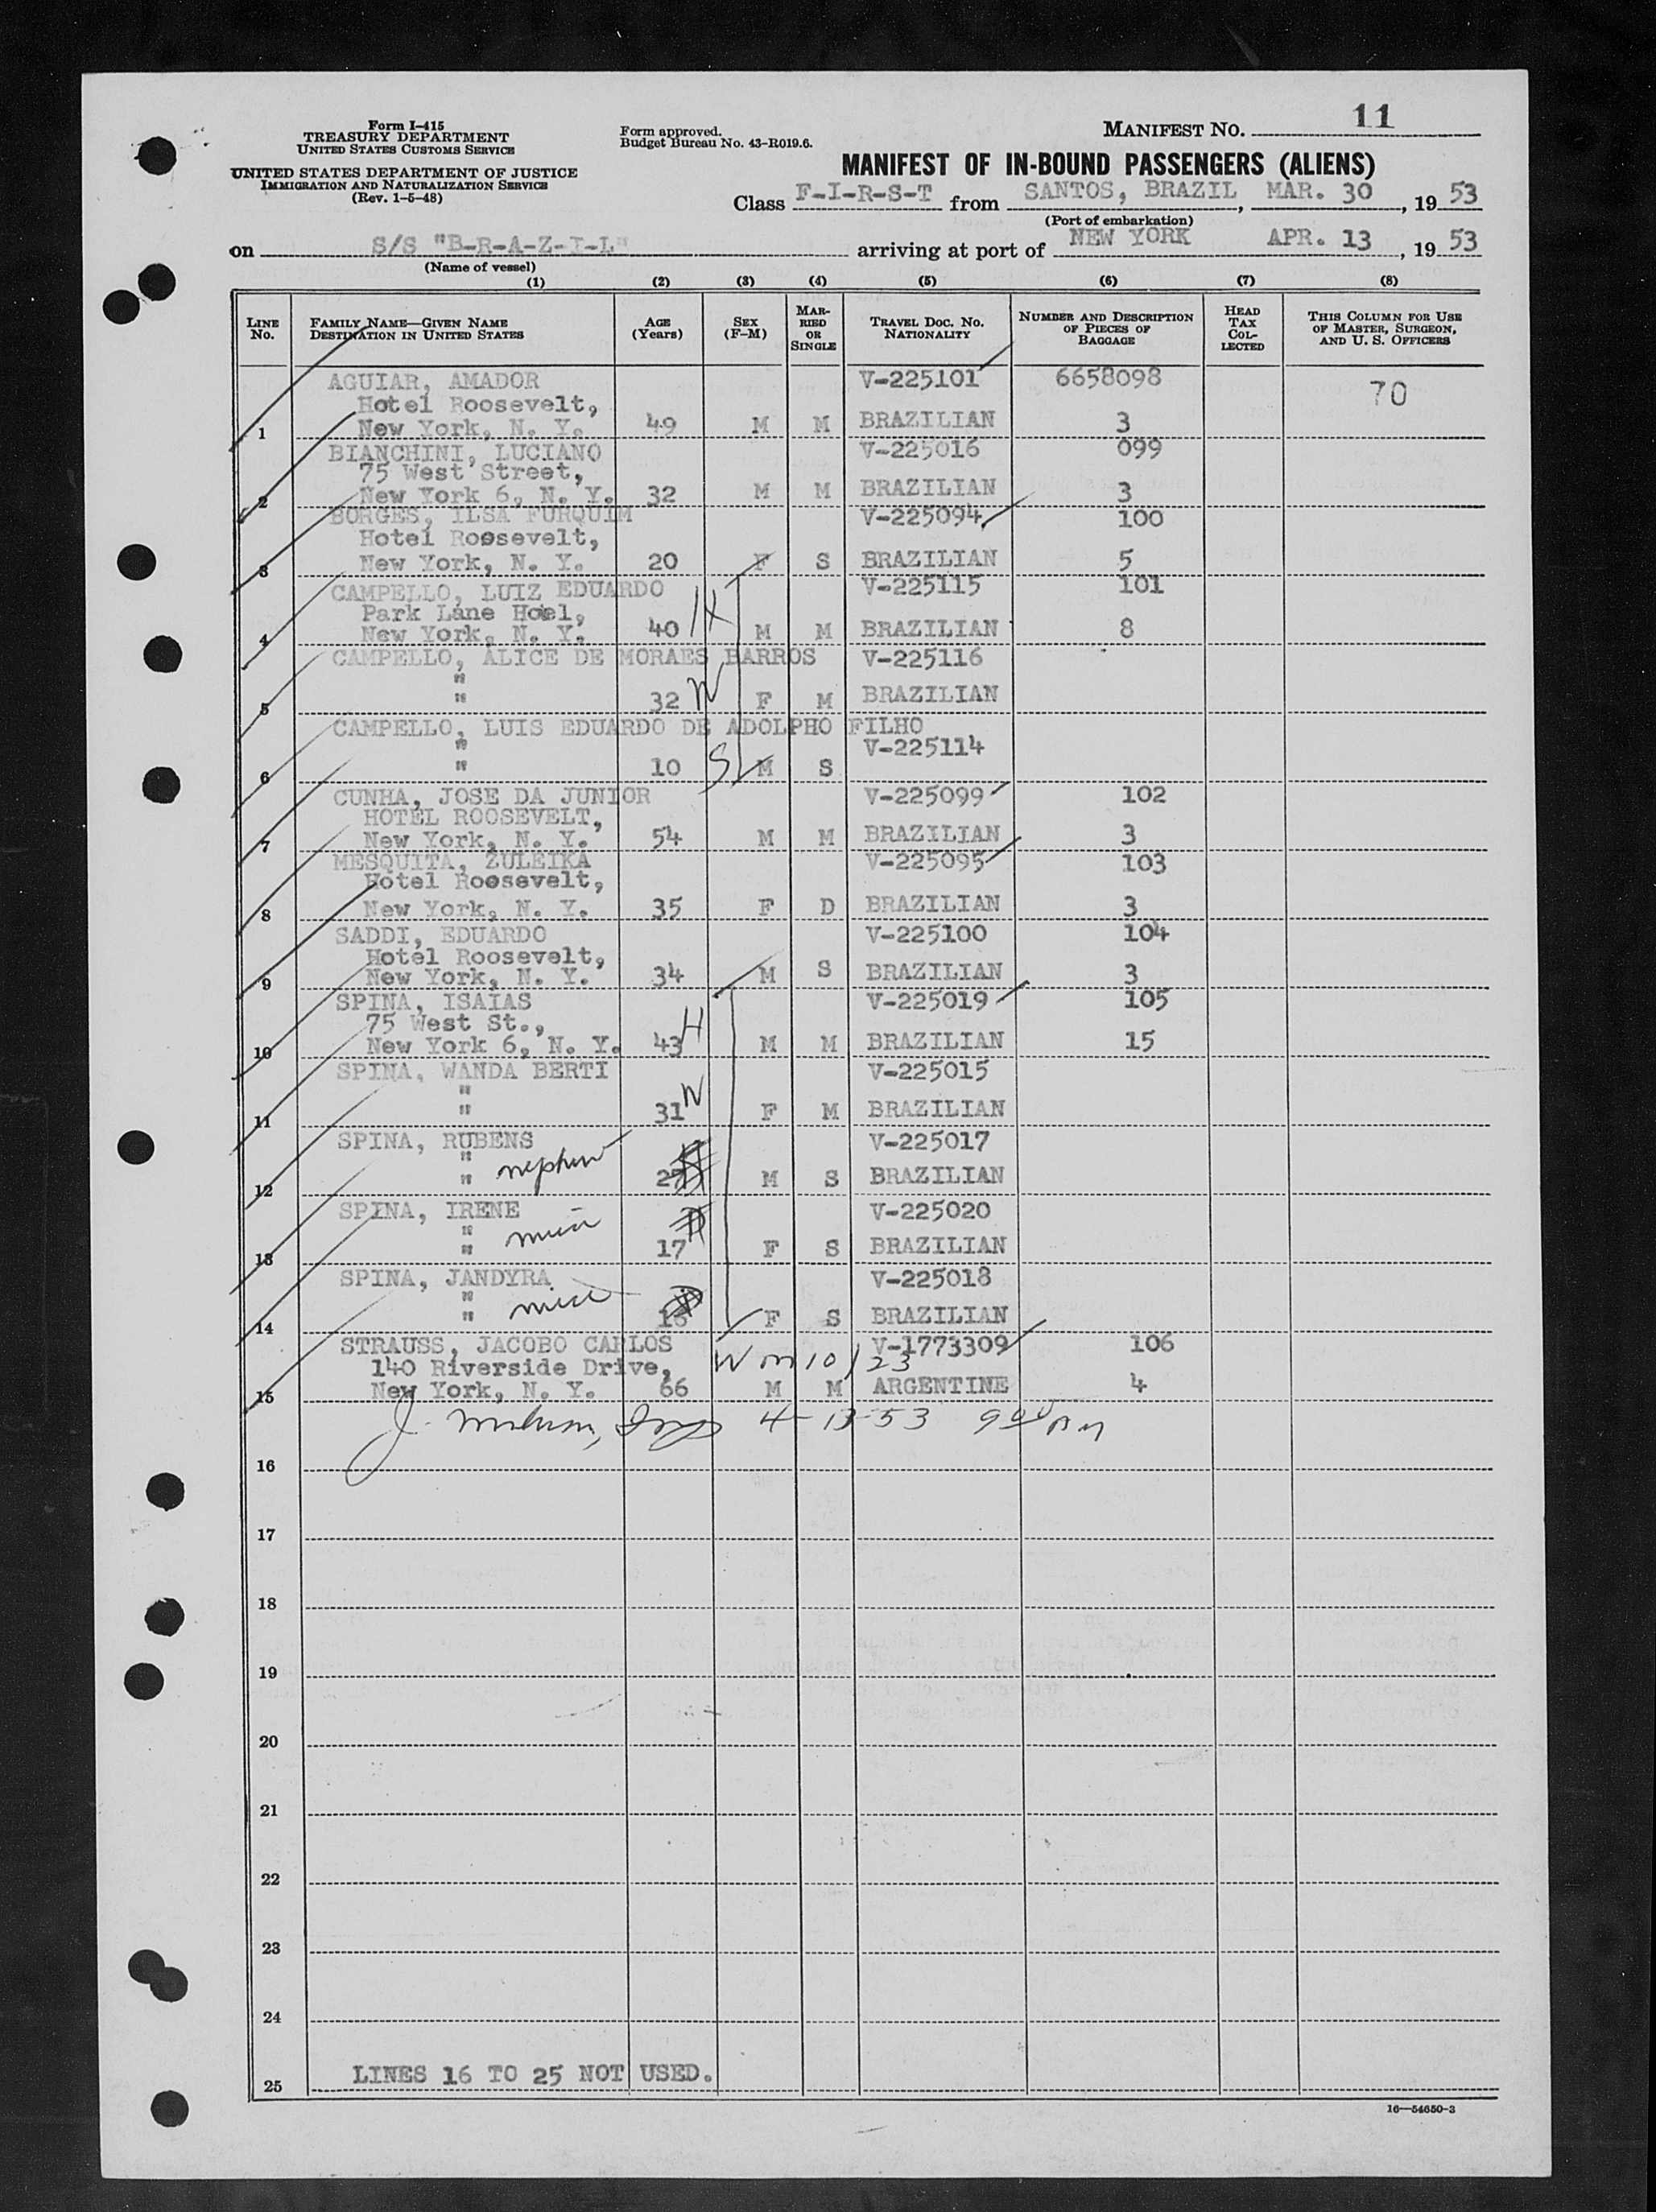 Form I-415
TREASURY DEPARTMENT
UNITED STATES CUSTOMS SERVICE
UNITED STATES DEPARTMENT OF JUSTICE
IMMIGRATION AND NATURALIZATION SERVICE
(Rev. 1-5-48)
Form approved.
Budget Bureau No. 43-R019.6.
MANIFEST NO. 11
MANIFEST OF IN-BOUND PASSENGERS (ALIENS)
Class F-I-R-S-T from SANTOS, BRAZIL, MAR. 30, 19 53
(Port of embarkation)
on S/S "B-R-A-Z-I-L" arriving at port of NEW YORK APR. 13, 19 53
(Name of vessel)
(1) (2) (3) (4) (5) (6) (7) (8)
LINE No. FAMILY NAME—GIVEN NAME DESTINATION IN UNITED STATES AGE (Years) SEX (F-M) MARRIED OR SINGLE TRAVEL DOC. NO. NATIONALITY NUMBER AND DESCRIPTION OF PIECES OF BAGGAGE HEAD TAX COLLECTED THIS COLUMN FOR USE OF MASTER, SURGEON, AND U. S. OFFICERS
AGUIAR, AMADOR V-225101 6658098 70
Hotel Roosevelt,
1 New York, N. Y. 49 M M BRAZILIAN 3
BIANCHINI, LUCIANO V-225016 099
75 West Street,
2 New York 6, N. Y. 32 M M BRAZILIAN 3
BORGES, ILSA FURQUIM V-225094 100
Hotel Roosevelt,
3 New York, N. Y. 20 F S BRAZILIAN 5
CAMPELLO, LUIZ EDUARDO V-225115 101
Park Lane Hoel,
4 New York, N. Y. 40 H M M BRAZILIAN 8
CAMPELLO, ALICE DE MORAES BARROS V-225116
"
5 " 32 W F M BRAZILIAN
CAMPELLO, LUIS EDUARDO DE ADOLPHO FILHO
" V-225114
6 " 10 S M S
CUNHA, JOSE DA JUNIOR V-225099 102
HOTEL ROOSEVELT,
7 New York, N. Y. 54 M M BRAZILIAN 3
MESQUITA, ZULEIKA V-225095 103
Hotel Roosevelt,
8 New York, N. Y. 35 F D BRAZILIAN 3
SADDI, EDUARDO V-225100 104
Hotel Roosevelt,
9 New York, N. Y. 34 M S BRAZILIAN 3
SPINA, ISAIAS V-225019 105
75 West St.,
10 New York 6, N. Y. 43 H M M BRAZILIAN 15
SPINA, WANDA BERTI V-225015
"
11 " 31 W F M BRAZILIAN
SPINA, RUBENS V-225017
"
12 " nephew M S BRAZILIAN
SPINA, IRENE V-225020
"
13 " niece 17 F S BRAZILIAN
SPINA, JANDYRA V-225018
"
14 " niece F S BRAZILIAN
STRAUSS, JACOBO CARLOS V-1773309 106
140 Riverside Drive, 10/23
15 New York, N. Y. 66 M M ARGENTINE 4
4-13-53 9 00 AM
16
17
18
19
20
21
22
23
24
25 LINES 16 TO 25 NOT USED.
16—54650-3